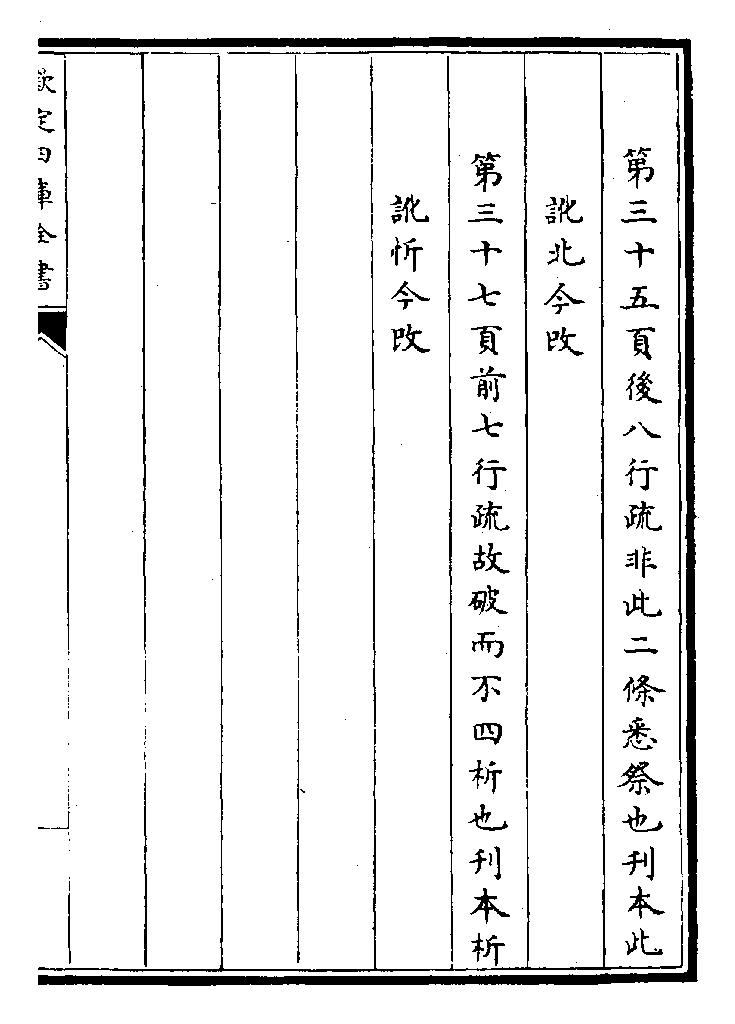 第三十五頁後八行疏非此二條悉祭也刋本此
訛北今改
第三十七頁前七行疏故破而不四析也刋本析
訛忻今改
欽定四庫全書